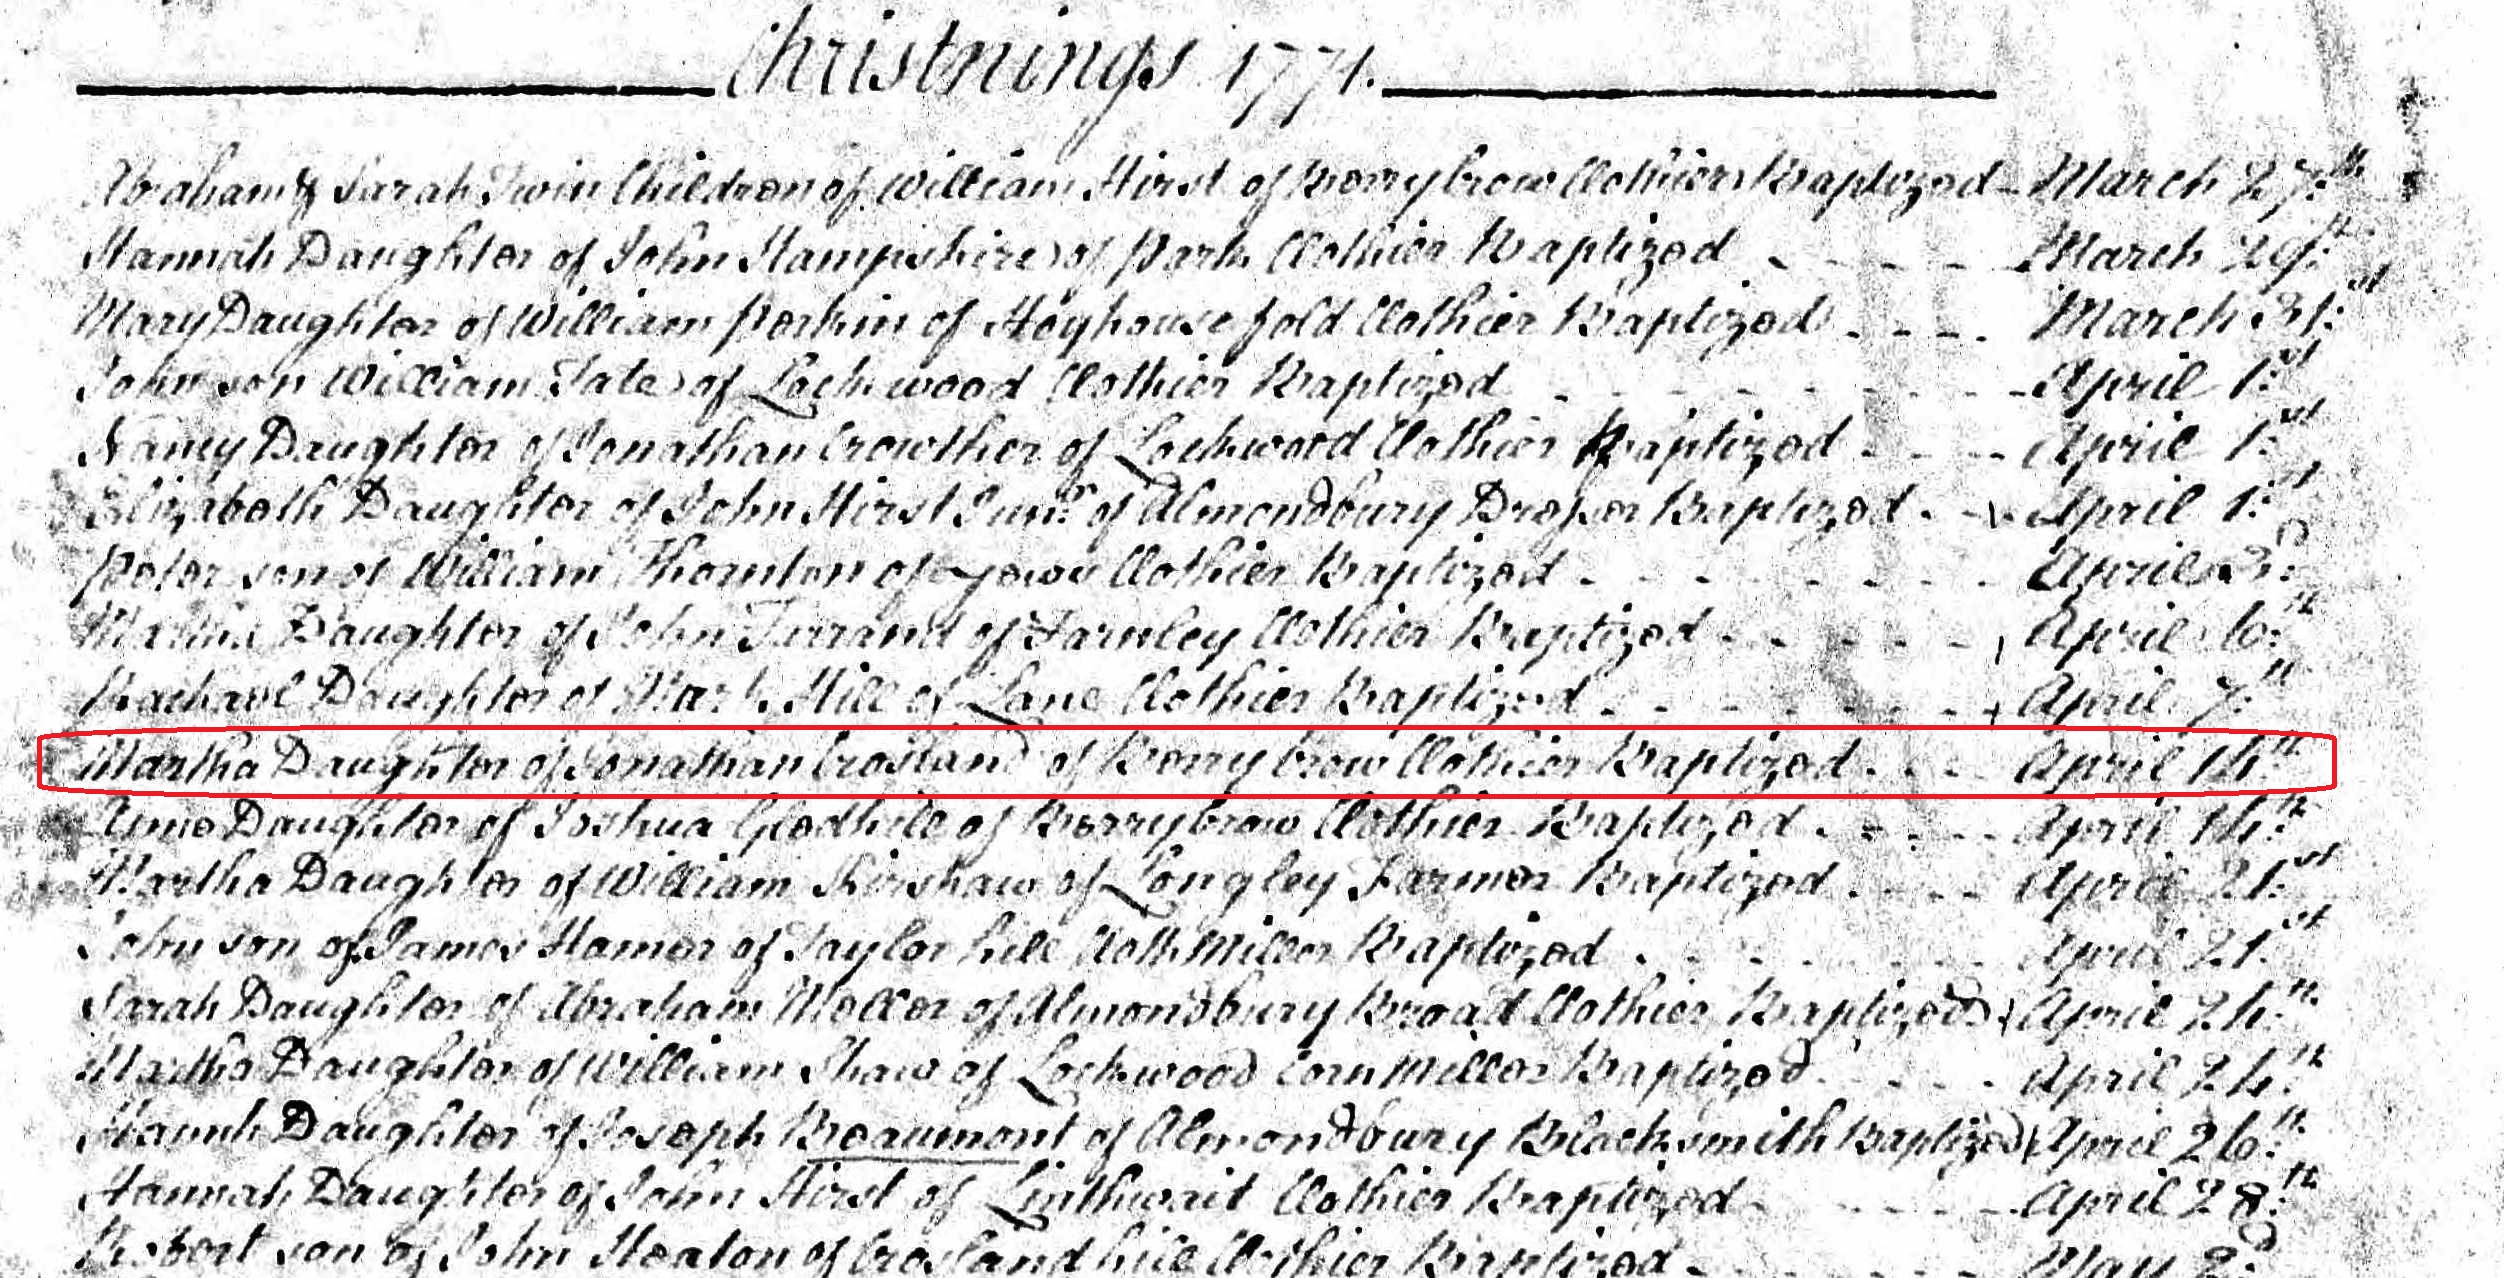 Christnings 1771.
Abraham & Sarah Twin Children of William Hirst of Berrybrow Clothier Baptized March 27th
Hannah Daughter of John Hampshire of Park Clothier Baptized March 29th
Mary Daughter of William Perkin of Hoyhouse fold Clothier Baptized March 31st
John son William Tate of Lockwood Clothier Baptized April 1st
Nancy Daughter of Jonathan Crowther of Lockwood Clothier Baptized April 1st
Elizabeth Daughter of John Hirst Junr. of Almondbury Draper Baptized April 1st
Peter son of William Thornton of Clothier Baptized April 3d
Martha Daughter of John Farrand of Farnley Clothier Baptized April 6th
Rachael Daughter of Mark Hill of Lane Clothier Baptized April 7th
Martha Daughter of Jonathan Crosland of Berry brow Clothier Baptized April 14th
Daughter of Joshua Gledhill of Berrybrow Clothier Baptized April 14th
Martha Daughter of William Kirshaw of Longley Farmer Baptized April 21st
John son of James Hamer of Taylor hill Cloth Miller Baptized April 21st
Sarah Daughter of Abraham Meller of Almondbury Broad Clothier Baptized April 24th
Martha Daughter of William Shaw of Lockwood Corn Miller Baptized April 24th
Hannah Daughter of Joseph Beaumont of Almondbury Blacksmith Baptized April 26th
Hannah Daughter of John Hirst of Linthwait Clothier Baptized April 28th
Robert son of John Heaton of Crosland hill Clothier Baptized May